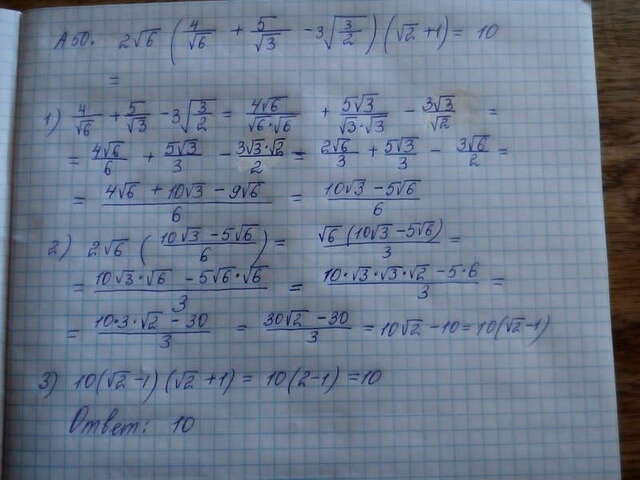 А50. 2√6 (4/√6 + 5/√3 - 3√(3/2)) (√2 + 1) = 10
=
1) 4/√6 + 5/√3 - 3√(3/2) = 4√6/(√6·√6) + 5√3/(√3·√3) - 3√3/√2 =
= 4√6/6 + 5√3/3 - 3√3·√2/2 = 2√6/3 + 5√3/3 - 3√6/2 =
= (4√6 + 10√3 - 9√6)/6 = (10√3 - 5√6)/6
2) 2√6 ((10√3 - 5√6)/6) = √6 (10√3 - 5√6)/3 =
= (10√3·√6 - 5√6·√6)/3 = (10·√3·√3·√2 - 5·6)/3 =
= (10·3·√2 - 30)/3 = (30√2 - 30)/3 = 10√2 - 10 = 10(√2 - 1)
3) 10(√2 - 1)(√2 + 1) = 10(2 - 1) = 10
Ответ: 10